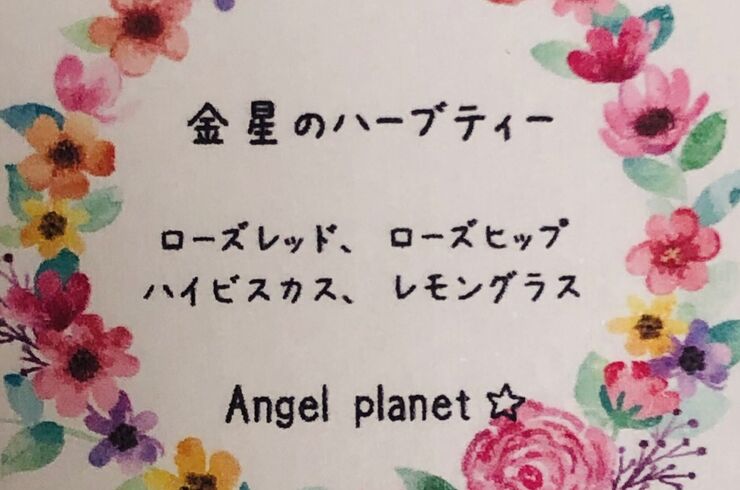 金星のハーブティー
ローズレッド、 ローズヒップ
ハイビスカス、 レモングラス
Angel planet☆